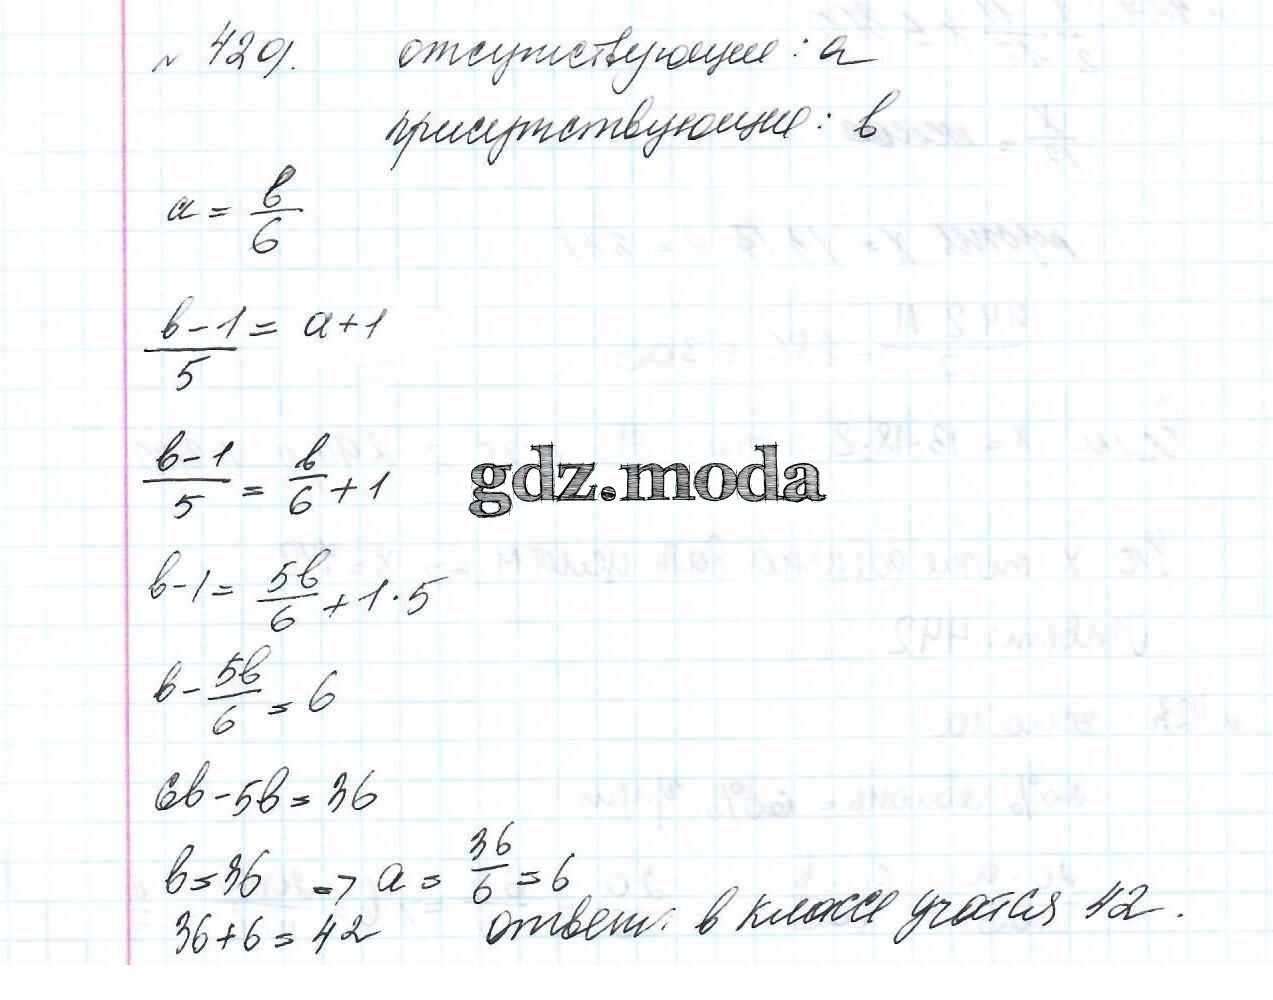 № 429. отсутствующие : а
присутствующие : в
а = в/6
(в-1)/5 = а+1
(в-1)/5 = в/6 + 1
gdz.moda
в-1 = 5в/6 + 1·5
в - 5в/6 = 6
6в - 5в = 36
в = 36 => а = 36/6 = 6
36+6 = 42 ответ: в классе учатся 42.